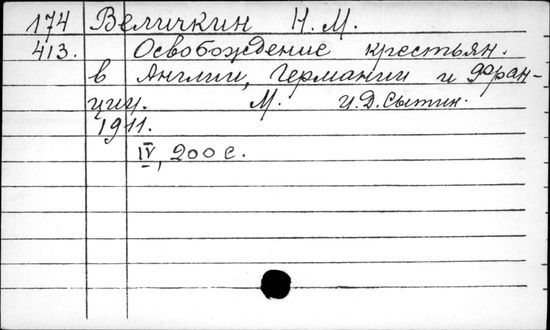 174 Величкин Н. М.
413. Освобождение крестьян.
в Англии, Германии и Фран-
ции. М. И.Д.Сытин.
1911.
IV, 200 с.